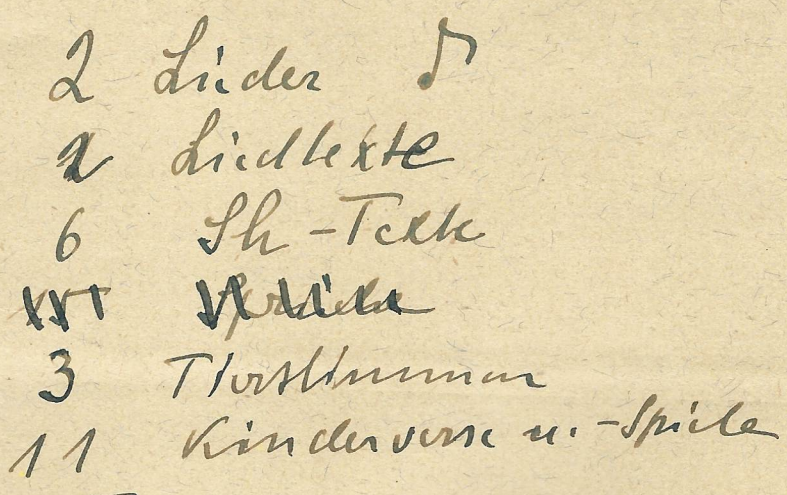 2 Lieder ♪
2 Liedtexte
6 Sh-Texte
3 Tierstimmen
11 Kinderverse u. -Spiele